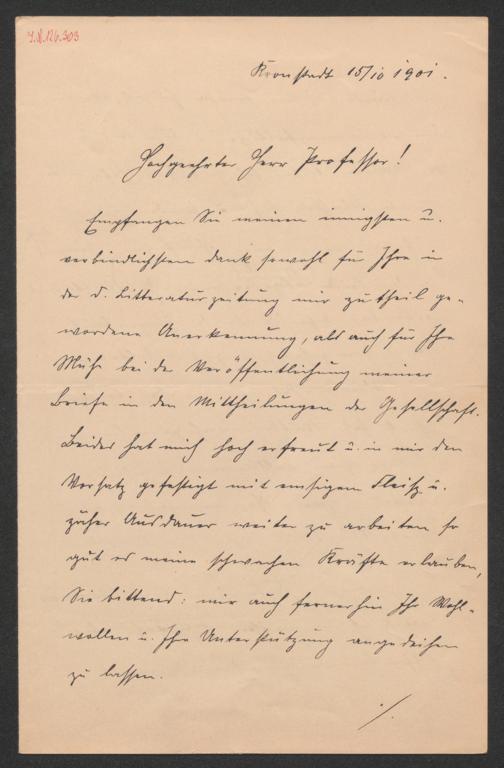 J.N. 126.303
Kronstadt 15/10 1901.
Hochgeehrter Herr Professor!
Empfangen Sie meinen innigsten u.
verbindlichsten Dank sowohl für Ihre in
der d. Litteraturzeitung mir zutheil ge-
wordene Anerkennung, als auch für Ihre
Mühe bei der Veröffentlichung meiner
Briefe in den Mittheilungen der Gesellschaft.
Beides hat mich hoch erfreut u. in mir den
Vorsatz gefestigt mit emsigem Fleiße u.
zäher Ausdauer weiter zu arbeiten so
gut es meine schwachen Kräfte erlauben,
Sie bittend: mir auch fernerhin Ihr Wohl-
wollen u. Ihre Unterstützung angedeihen
zu lassen.
./.